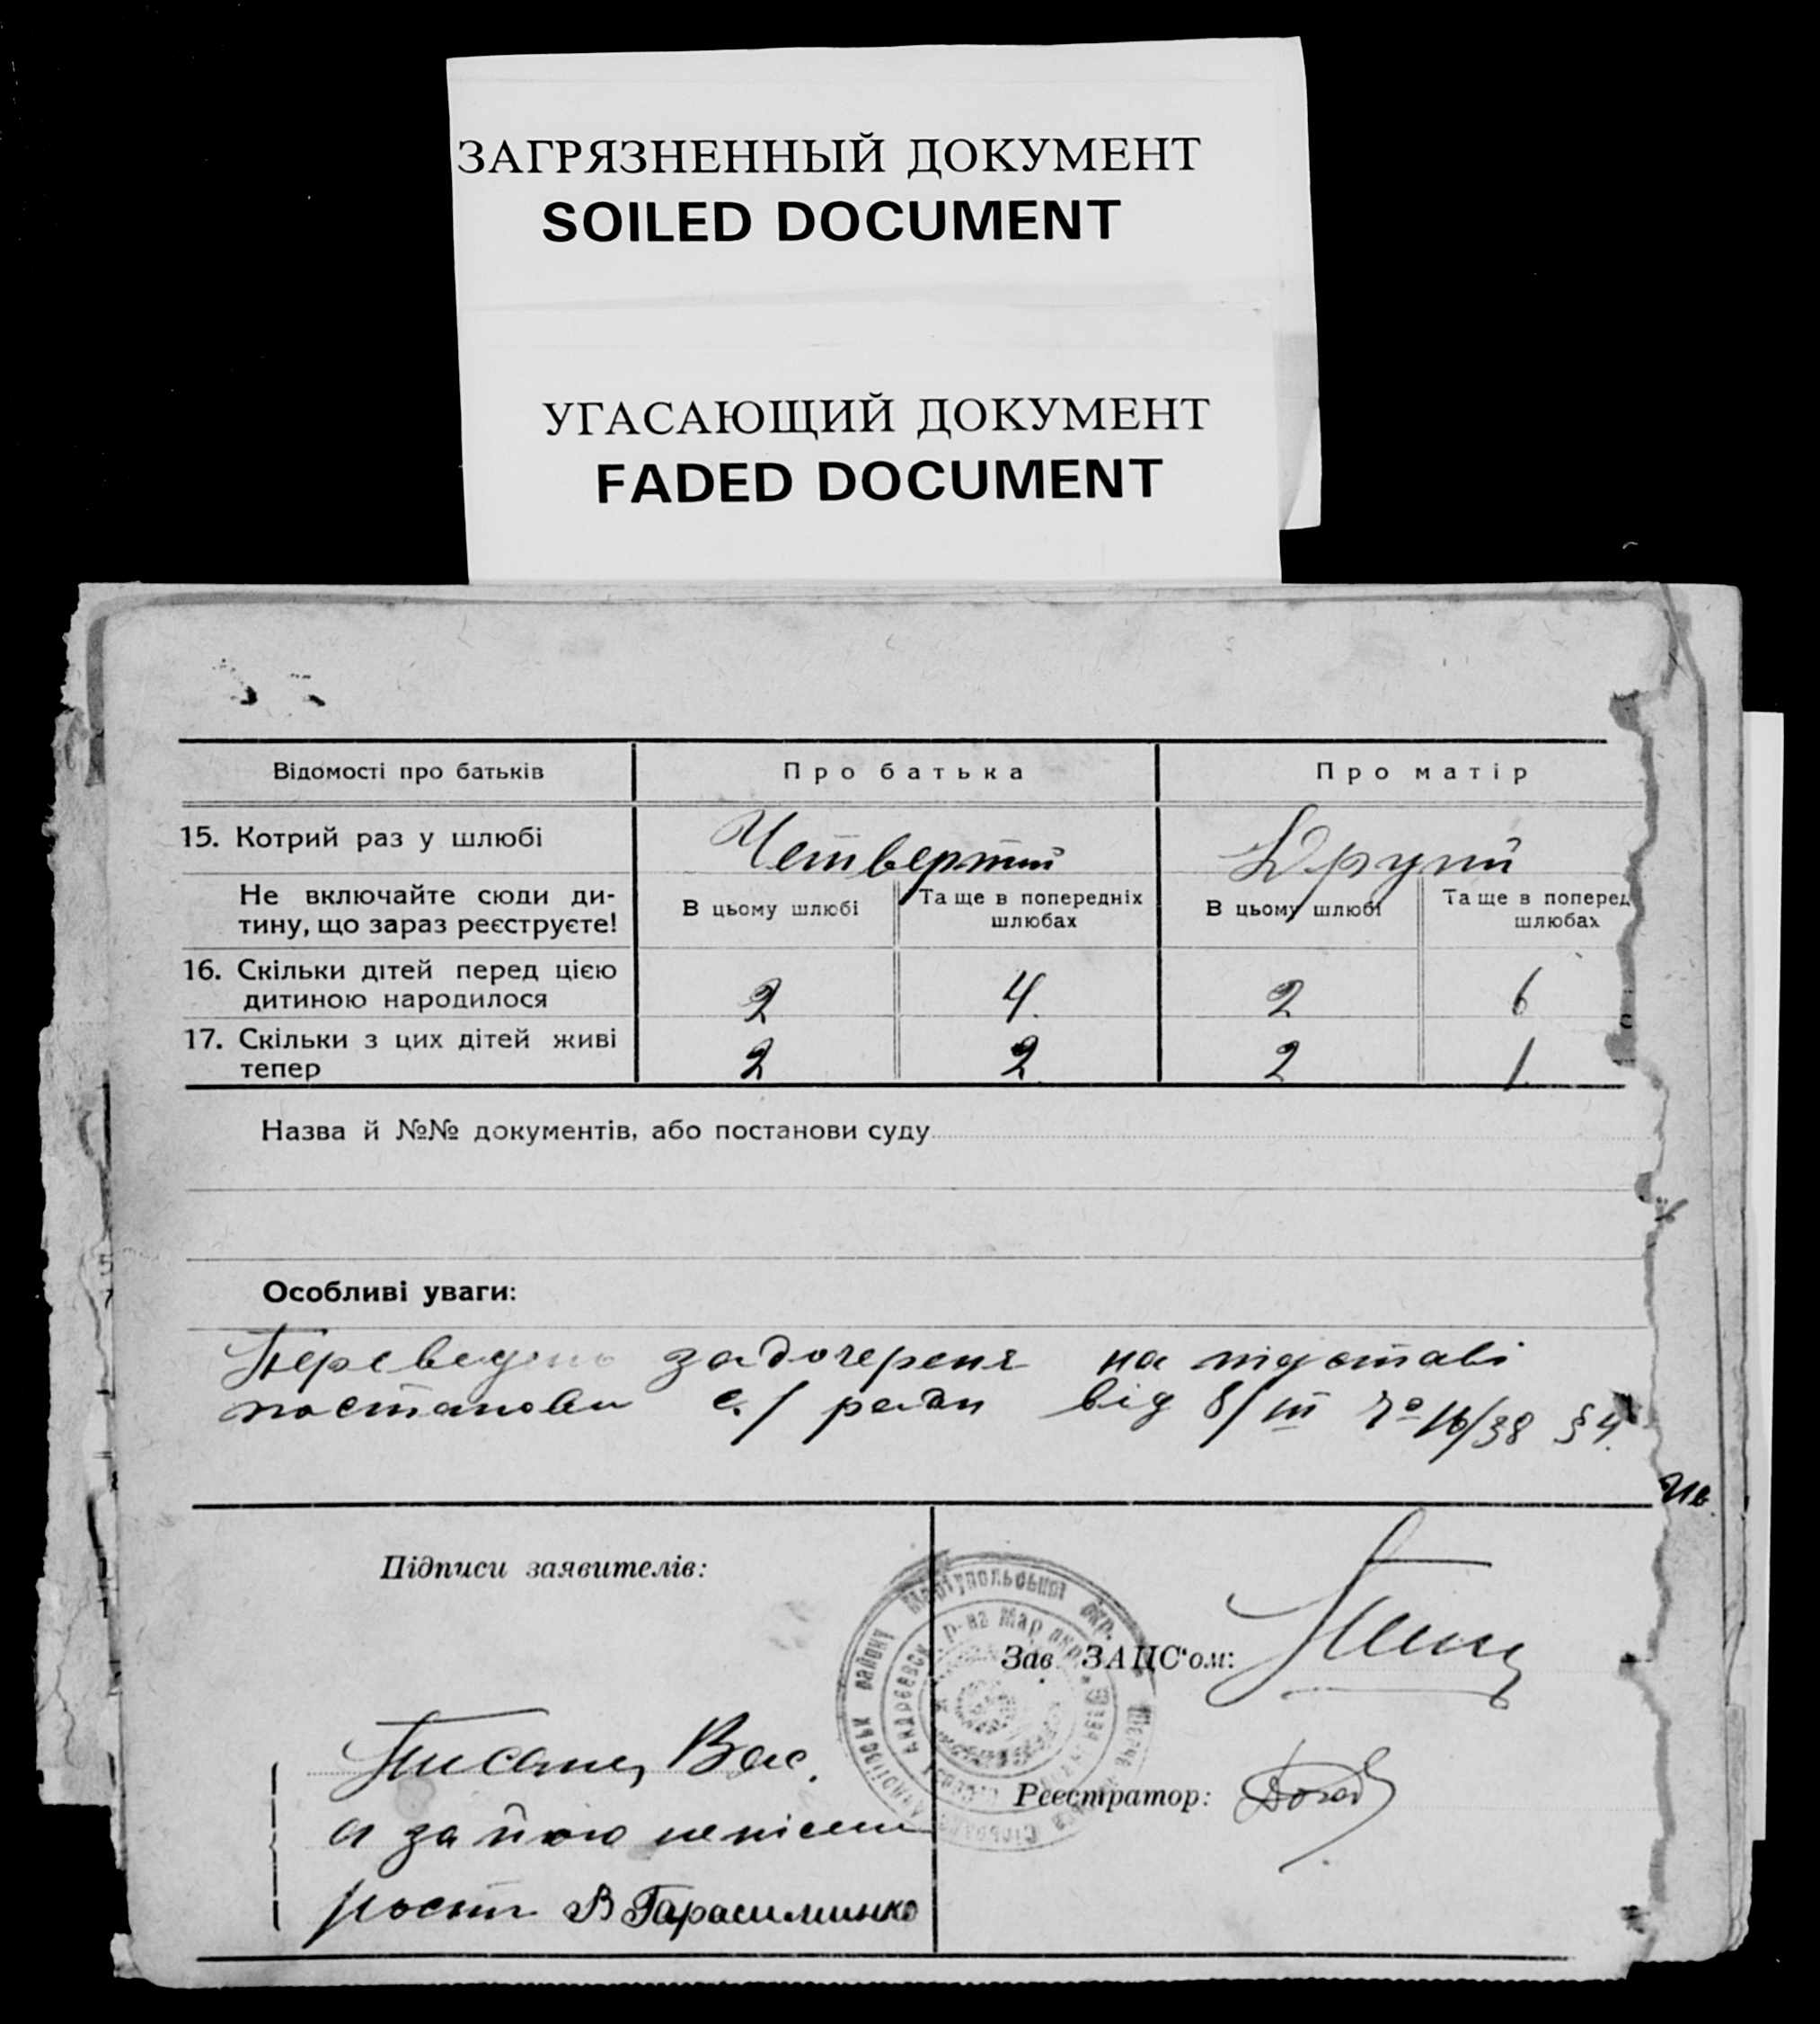 ЗАГРЯЗНЕННЫЙ ДОКУМЕНТ
SOILED DOCUMENT
УГАСАЮЩИЙ ДОКУМЕНТ
FADED DOCUMENT
Відомості про батьків Про батька Про матір
15. Котрий раз у шлюбі Четвертий Другий
Не включайте сюди ди-
тину, що зараз реєструєте!
В цьому шлюбі Та ще в попередніх
шлюбах
В цьому шлюбі Та ще в поперед
шлюбах
16. Скільки дітей перед цією
дитиною народилося 2 4 2 6
17. Скільки з цих дітей живі
тепер 2 2 2 1
Назва й №№ документів, або постанови суду
Особливі уваги:
на підставі
постанови с/ради від 8/III 16/38 §4.
Підписи заявителів:
Зав. ЗАЦС'ом:
Вас.
а за його неписьм
В Гарасиминко
Реєстратор:
Маріупольської окр.
району